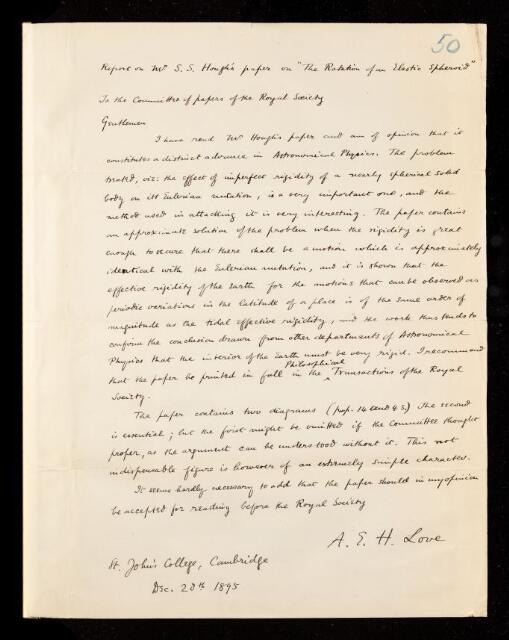 50
Report on Mr S. S. Hough's paper on "The Rotation of an Elastic Spheroid"
To the Committee of papers of the Royal Society
Gentlemen
I have read Mr Hough's paper and am of opinion that it
constitutes a distinct advance in Astronomical Physics. The problem
treated, viz: the effect of imperfect rigidity of a nearly spherical solid
body on its Eulerian nutation, is a very important one, and the
method used in attacking it is very interesting. The paper contains
an approximate solution of the problem when the rigidity is great
enough to secure that there shall be a motion which is approximately
identical with the Eulerian nutation, and it is shown that the
effective rigidity of the Earth for the motions that can be observed as
periodic variations in the latitude of a place is of the same order of
magnitude as the tidal effective rigidity, and the work thus tends to
confirm the conclusion drawn from other departments of Astronomical
Physics that the interior of the Earth must be very rigid. I recommend
Philosophical
that the paper be printed in full in the ^ Transactions of the Royal
Society.
The paper contains two diagrams (pp. 14 and 43.) The second
is essential; but the first might be omitted if the Committee thought
proper, as the argument can be understood without it. This not
indispensable figure is however of an extremely simple character.
It seems hardly necessary to add that the paper should in my opinion
be accepted for reading before the Royal Society
A. E. H. Love
St. John's College, Cambridge
Dec. 20th 1895